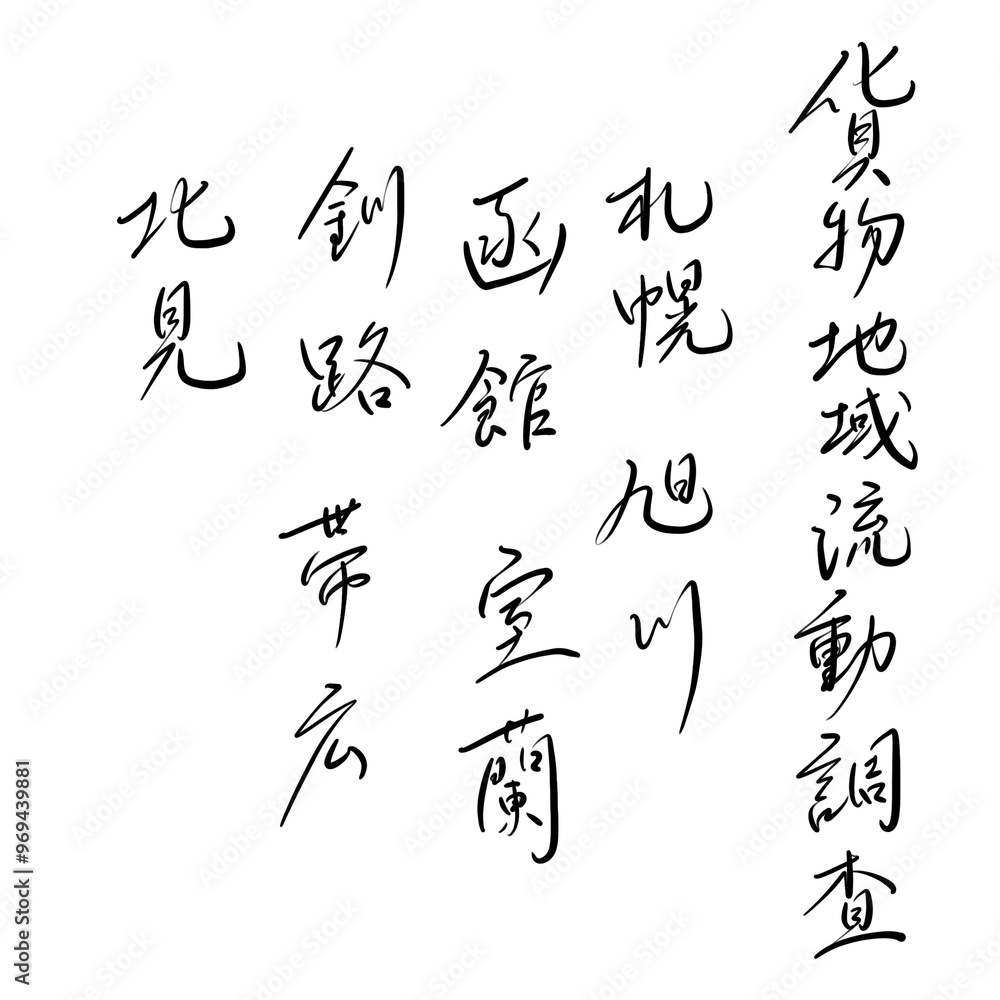 貨物地域流動調査
札幌 旭川
函館 室蘭
釧路 帯広
北見
Adobe Stock | #969439881